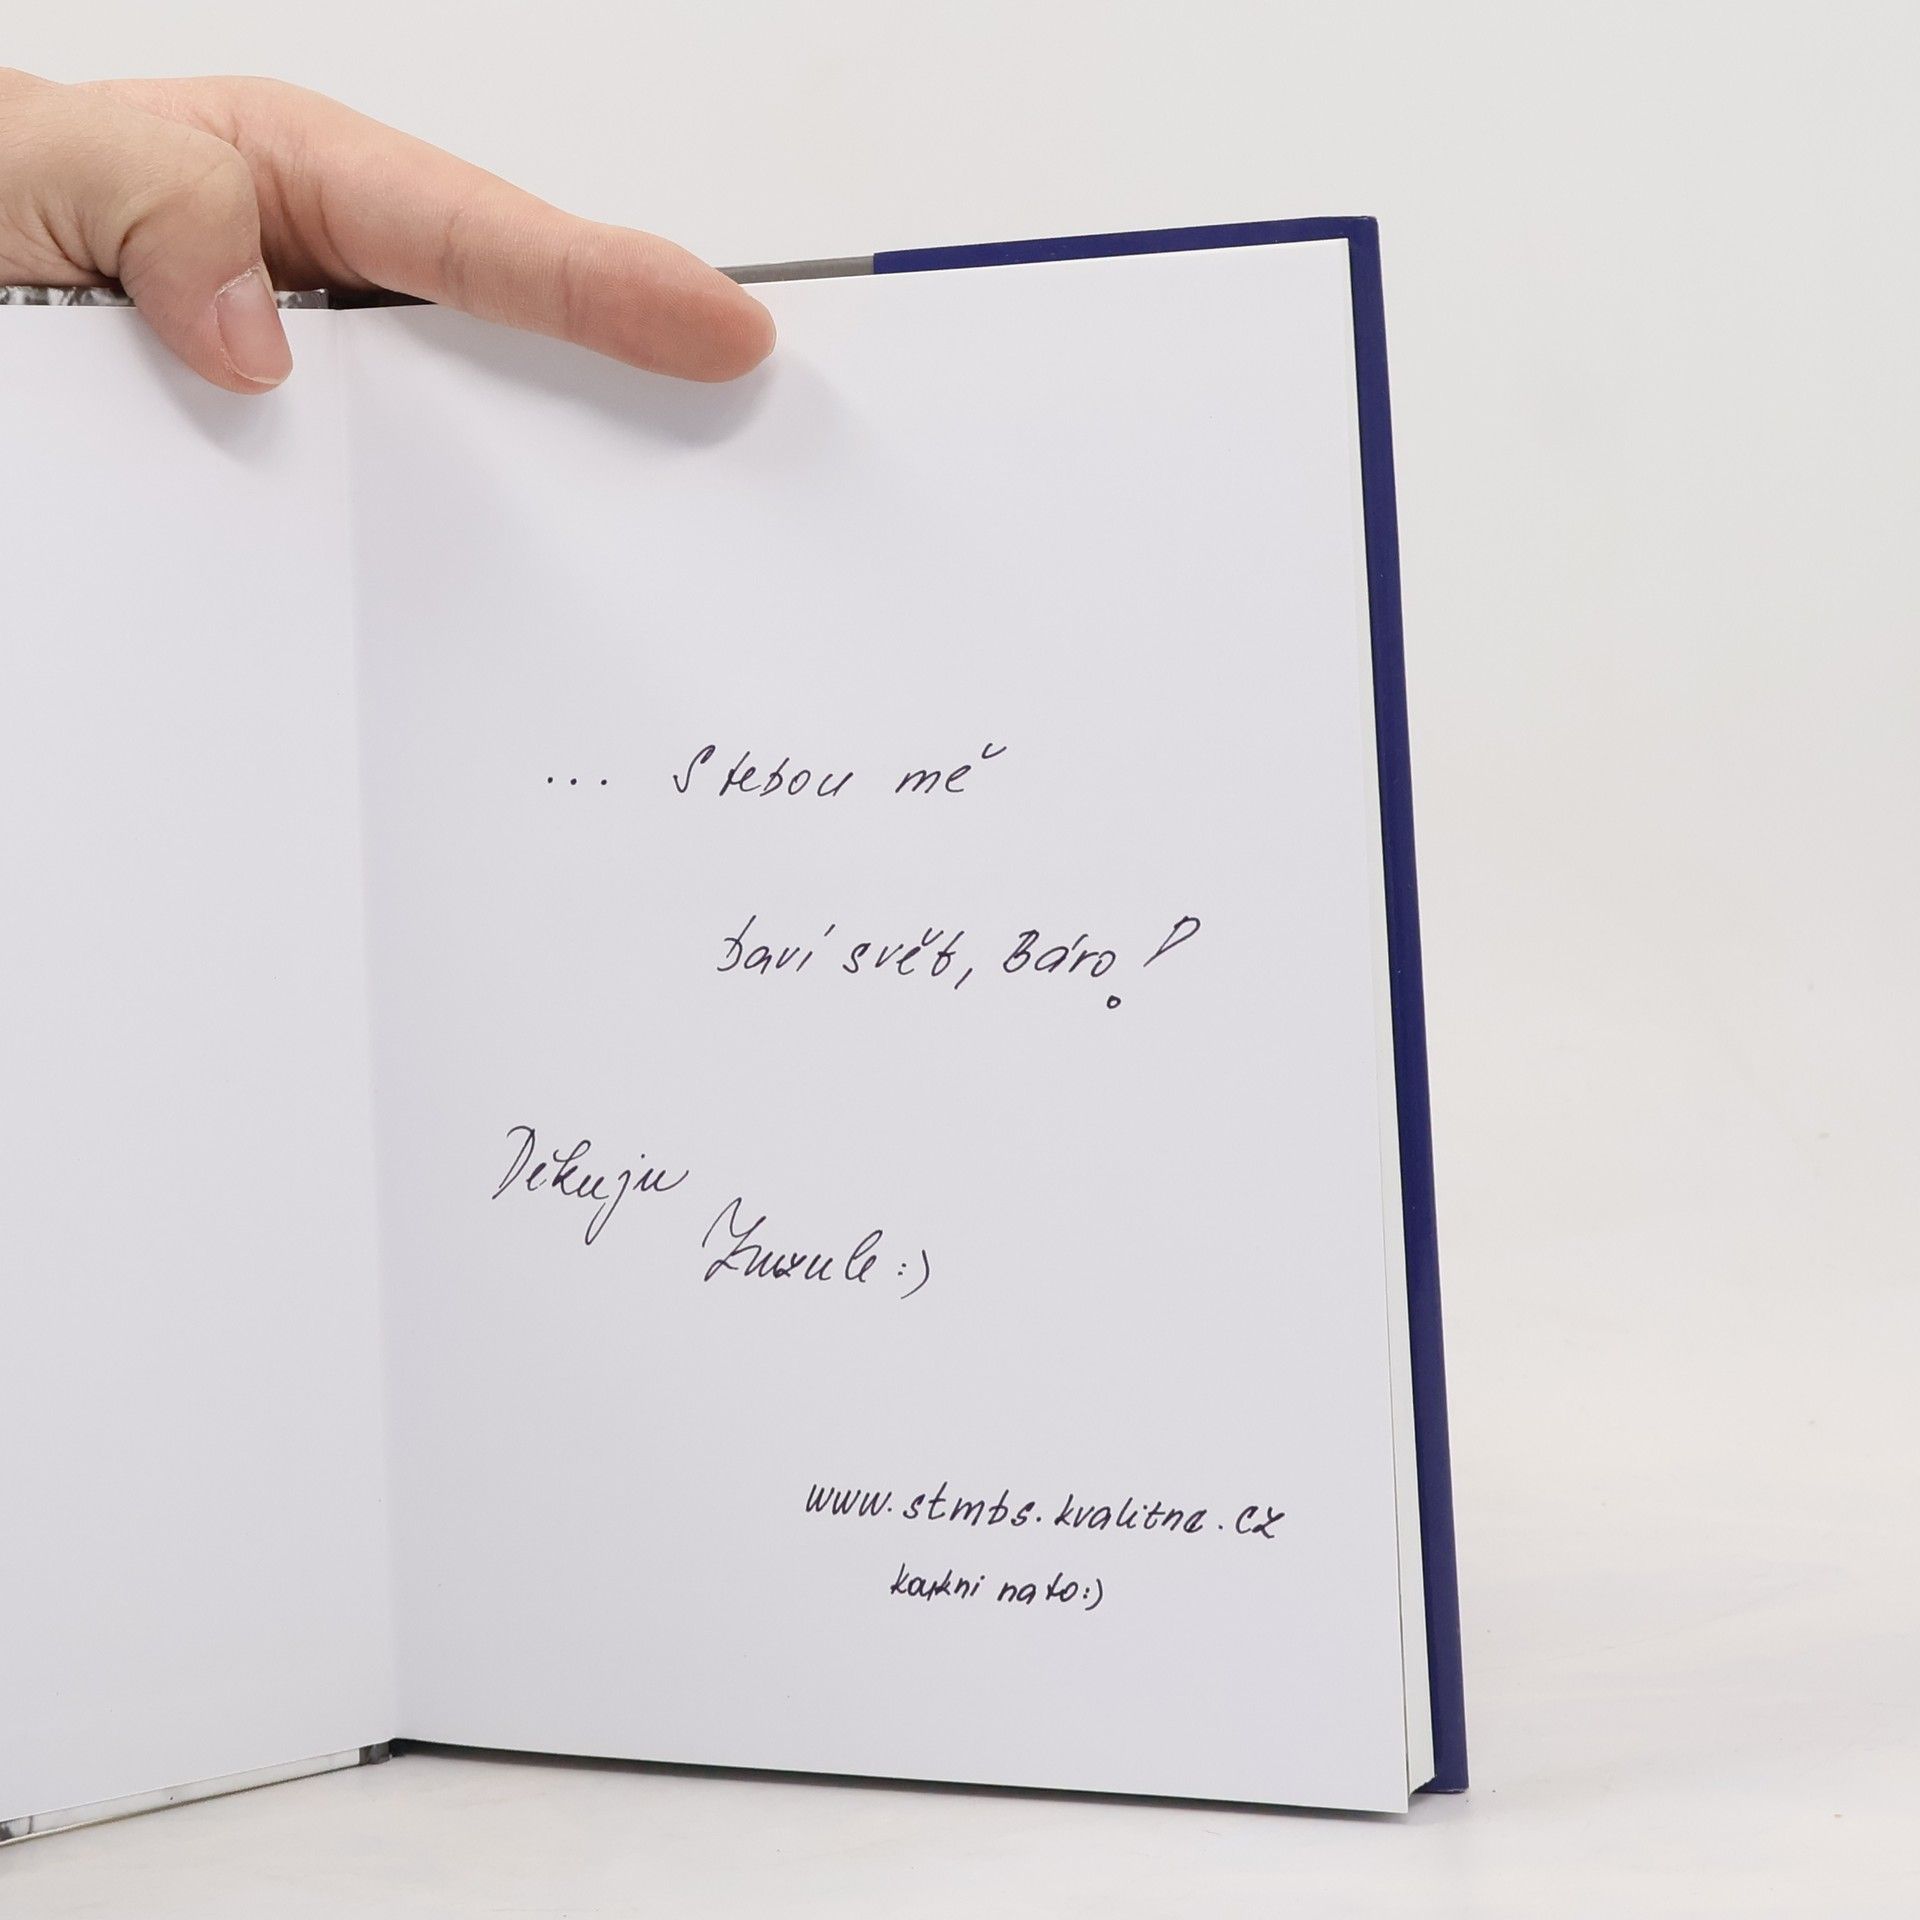 ... S tebou mě
baví svět, Báro!
Děkuju
Zuzule :)
www.stmbs.kvalitne.cz
koukni na to :)